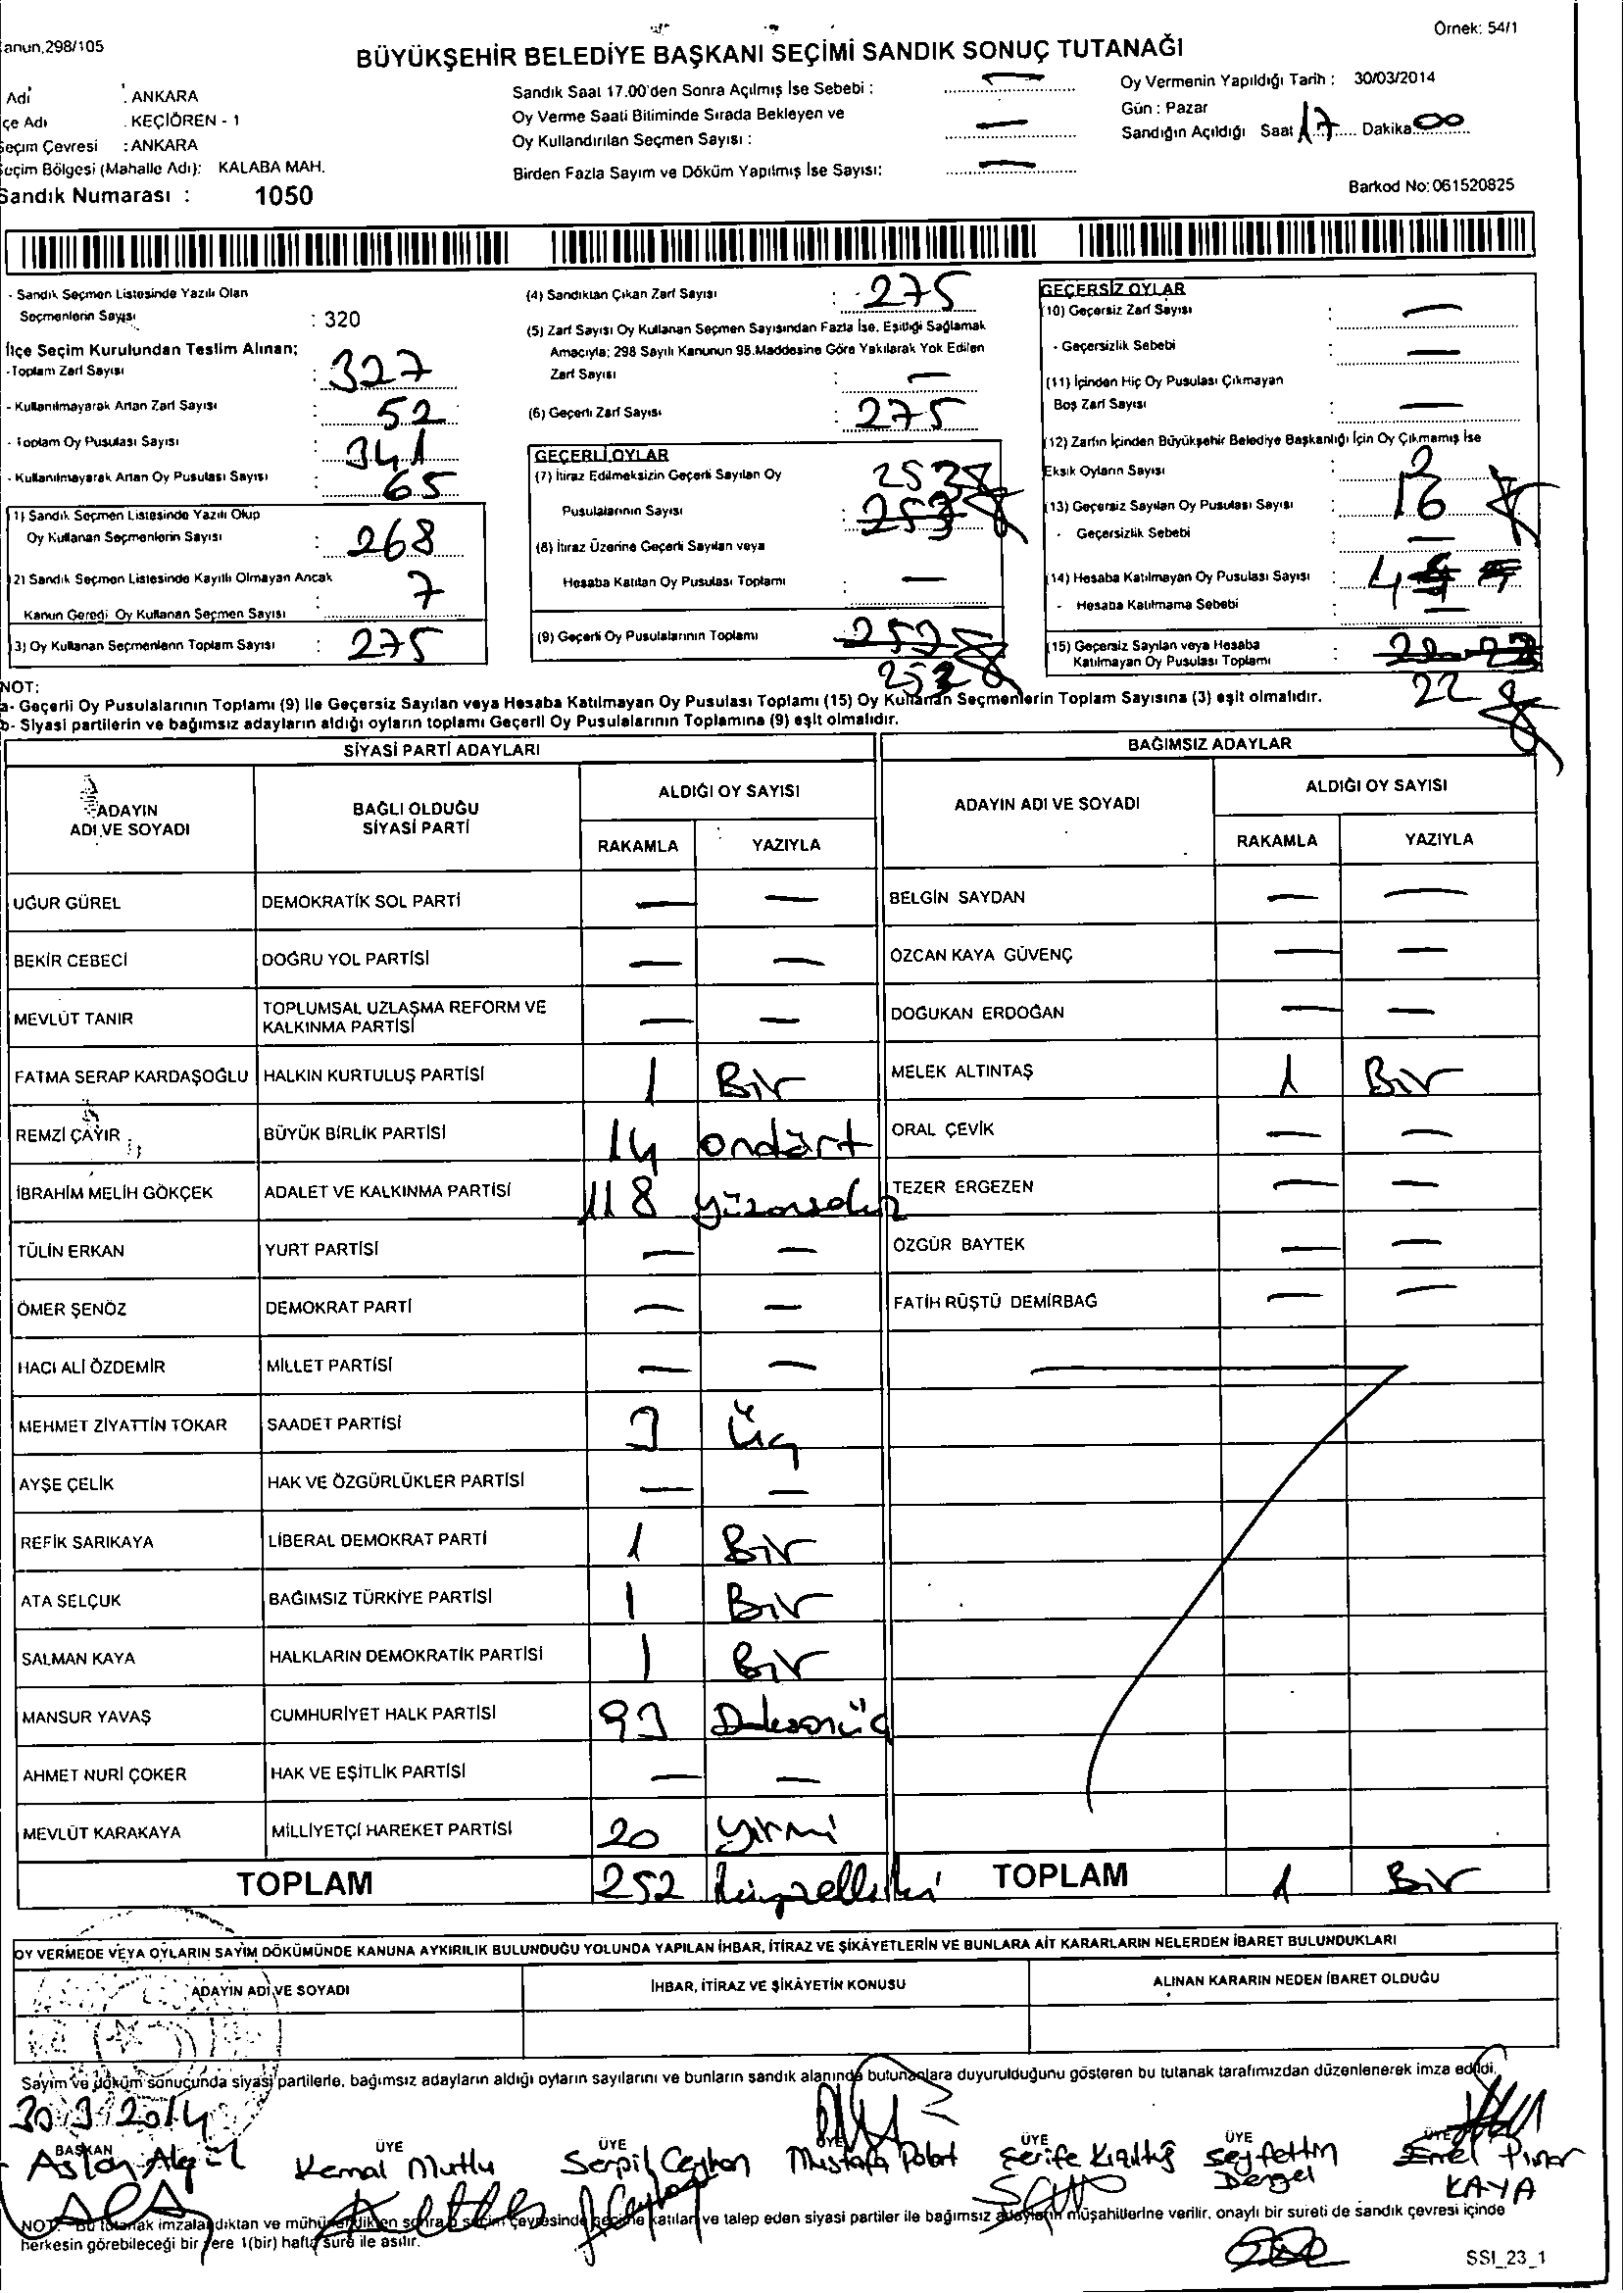 anun,298/105
Örnek: 54/1
BÜYÜKŞEHİR BELEDİYE BAŞKANI SEÇİMİ SANDIK SONUÇ TUTANAĞI
Adi : ANKARA
çe Adı : KEÇİÖREN - 1
Seçim Çevresi : ANKARA
Seçim Bölgesi (Mahalle Adı): KALABA MAH.
Sandık Numarası : 1050
Sandık Saat 17.00'den Sonra Açılmış İse Sebebi : —
Oy Verme Saati Bitiminde Sırada Bekleyen ve
Oy Kullandırılan Seçmen Sayısı : —
Birden Fazla Sayım ve Döküm Yapılmış İse Sayısı: —
Oy Vermenin Yapıldığı Tarih : 30/03/2014
Gün : Pazar
Sandığın Açıldığı Saat 17 Dakika 00
Barkod No: 061520825
- Sandık Seçmen Listesinde Yazılı Olan
Seçmenlerin Sayısı : 320
İlçe Seçim Kurulundan Teslim Alınan;
-Toplam Zarf Sayısı : 327
- Kullanılmayarak Artan Zarf Sayısı : 52
- Toplam Oy Pusulası Sayısı : 341
- Kullanılmayarak Artan Oy Pusulası Sayısı : 65
1) Sandık Seçmen Listesinde Yazılı Olup
Oy Kullanan Seçmenlerin Sayısı : 268
2) Sandık Seçmen Listesinde Kayıtlı Olmayan Ancak
Kanun Gereği Oy Kullanan Seçmen Sayısı : 7
3) Oy Kullanan Seçmenlerin Toplam Sayısı : 275
(4) Sandıktan Çıkan Zarf Sayısı : 275
(5) Zarf Sayısı Oy Kullanan Seçmen Sayısından Fazla İse, Eşitliği Sağlamak
Amacıyla; 298 Sayılı Kanunun 98.Maddesine Göre Yakılarak Yok Edilen
Zarf Sayısı : —
(6) Geçerli Zarf Sayısı : 275
GEÇERLİ OYLAR
(7) İtiraz Edilmeksizin Geçerli Sayılan Oy 253
Pusulalarının Sayısı : 253
(8) İtiraz Üzerine Geçerli Sayılan veya
Hesaba Katılan Oy Pusulası Toplamı : —
(9) Geçerli Oy Pusulalarının Toplamı :
253
GEÇERSİZ OYLAR
(10) Geçersiz Zarf Sayısı : —
- Geçersizlik Sebebi : —
(11) İçinden Hiç Oy Pusulası Çıkmayan
Boş Zarf Sayısı : —
(12) Zarfın İçinden Büyükşehir Belediye Başkanlığı İçin Oy Çıkmamış İse
Eksik Oyların Sayısı : 2
(13) Geçersiz Sayılan Oy Pusulası Sayısı : 16
- Geçersizlik Sebebi : —
(14) Hesaba Katılmayan Oy Pusulası Sayısı : 4
- Hesaba Katılmama Sebebi : —
(15) Geçersiz Sayılan veya Hesaba
Katılmayan Oy Pusulası Toplamı :
22
NOT:
a- Geçerli Oy Pusulalarının Toplamı (9) ile Geçersiz Sayılan veya Hesaba Katılmayan Oy Pusulası Toplamı (15) Oy Kullanan Seçmenlerin Toplam Sayısına (3) eşit olmalıdır.
b- Siyasi partilerin ve bağımsız adayların aldığı oyların toplamı Geçerli Oy Pusulalarının Toplamına (9) eşit olmalıdır.
SİYASİ PARTİ ADAYLARI
ADAYIN
ADI VE SOYADI
BAĞLI OLDUĞU
SİYASİ PARTİ
ALDIĞI OY SAYISI
RAKAMLA YAZIYLA
UĞUR GÜREL DEMOKRATİK SOL PARTİ — —
BEKİR CEBECİ DOĞRU YOL PARTİSİ — —
MEVLÜT TANIR TOPLUMSAL UZLAŞMA REFORM VE
KALKINMA PARTİSİ — —
FATMA SERAP KARDAŞOĞLU HALKIN KURTULUŞ PARTİSİ 1 Bir
REMZİ ÇAYIR BÜYÜK BİRLİK PARTİSİ 14 ondört
İBRAHİM MELİH GÖKÇEK ADALET VE KALKINMA PARTİSİ 118 yüzonsekiz
TÜLİN ERKAN YURT PARTİSİ — —
ÖMER ŞENÖZ DEMOKRAT PARTİ — —
HACI ALİ ÖZDEMİR MİLLET PARTİSİ — —
MEHMET ZİYATTİN TOKAR SAADET PARTİSİ 3 Üç
AYŞE ÇELİK HAK VE ÖZGÜRLÜKLER PARTİSİ — —
REFİK SARIKAYA LİBERAL DEMOKRAT PARTİ 1 Bir
ATA SELÇUK BAĞIMSIZ TÜRKİYE PARTİSİ 1 Bir
SALMAN KAYA HALKLARIN DEMOKRATİK PARTİSİ 1 Bir
MANSUR YAVAŞ CUMHURİYET HALK PARTİSİ 93 Doksanüç
AHMET NURİ ÇOKER HAK VE EŞİTLİK PARTİSİ — —
MEVLÜT KARAKAYA MİLLİYETÇİ HAREKET PARTİSİ 20 yirmi
TOPLAM 252 ikiyüzelliiki
BAĞIMSIZ ADAYLAR
ADAYIN ADI VE SOYADI
ALDIĞI OY SAYISI
RAKAMLA YAZIYLA
BELGİN SAYDAN — —
ÖZCAN KAYA GÜVENÇ — —
DOĞUKAN ERDOĞAN — —
MELEK ALTINTAŞ 1 Bir
ORAL ÇEVİK — —
TEZER ERGEZEN — —
ÖZGÜR BAYTEK — —
FATİH RÜŞTÜ DEMİRBAĞ — —
TOPLAM 1 Bir
OY VERMEDE VEYA OYLARIN SAYIM DÖKÜMÜNDE KANUNA AYKIRILIK BULUNDUĞU YOLUNDA YAPILAN İHBAR, İTİRAZ VE ŞİKÂYETLERİN VE BUNLARA AİT KARARLARIN NELERDEN İBARET BULUNDUKLARI
ADAYIN ADI VE SOYADI
İHBAR, İTİRAZ VE ŞİKÂYETİN KONUSU
ALINAN KARARIN NEDEN İBARET OLDUĞU
Sayım ve döküm sonucunda siyasi partilerle, bağımsız adayların aldığı oyların sayılarını ve bunların sandık alanında bulunanlara duyurulduğunu gösteren bu tutanak tarafımızdan düzenlenerek imza edildi.
30/3/2014
BAŞKAN ÜYE ÜYE ÜYE ÜYE ÜYE ÜYE
Kemal Mutlu Serpil Ceyhan Mustafa Polat Şerife Kızıltuğ Seyfettin Emel Pınar
KAYA
NOT: Bu tutanak imzalandıktan ve mühürlendikten sonra o seçim çevresinde seçime katılan ve talep eden siyasi partiler ile bağımsız adayların müşahitlerine verilir, onaylı bir sureti de sandık çevresi içinde
herkesin görebileceği bir yere 1(bir) hafta süre ile asılır.
SSI_23_1